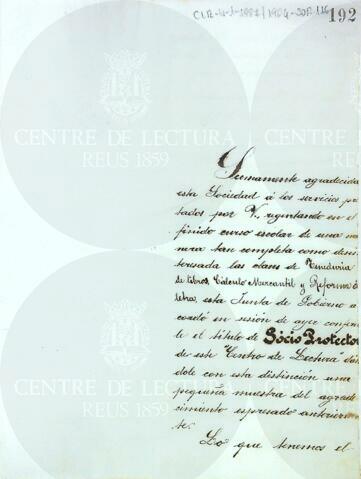 CLR-4-1-1881/1904-SOB.116
192
CENTRE DE LECTURA
REUS 1859
CENTRE DE LECTURA
REUS 1859
Sumamente agradecida
esta Sociedad á los servicios pres
tados por V. regentando en el
finido curso escolar de una ma
nera tan completa como desin
teresada las clases de Teneduria
de libros, Cálculo Mercantil y Reforma de
letra, esta Junta de Gobierno a
cordó en sesión de ayer conferir
le el título de Sócio Protector
de este "Centro de Lectura" dán
dole con esta distinción una
pequeña muestra del agrade
cimiento espresado anteriormen
te.
Lo que tenemos el